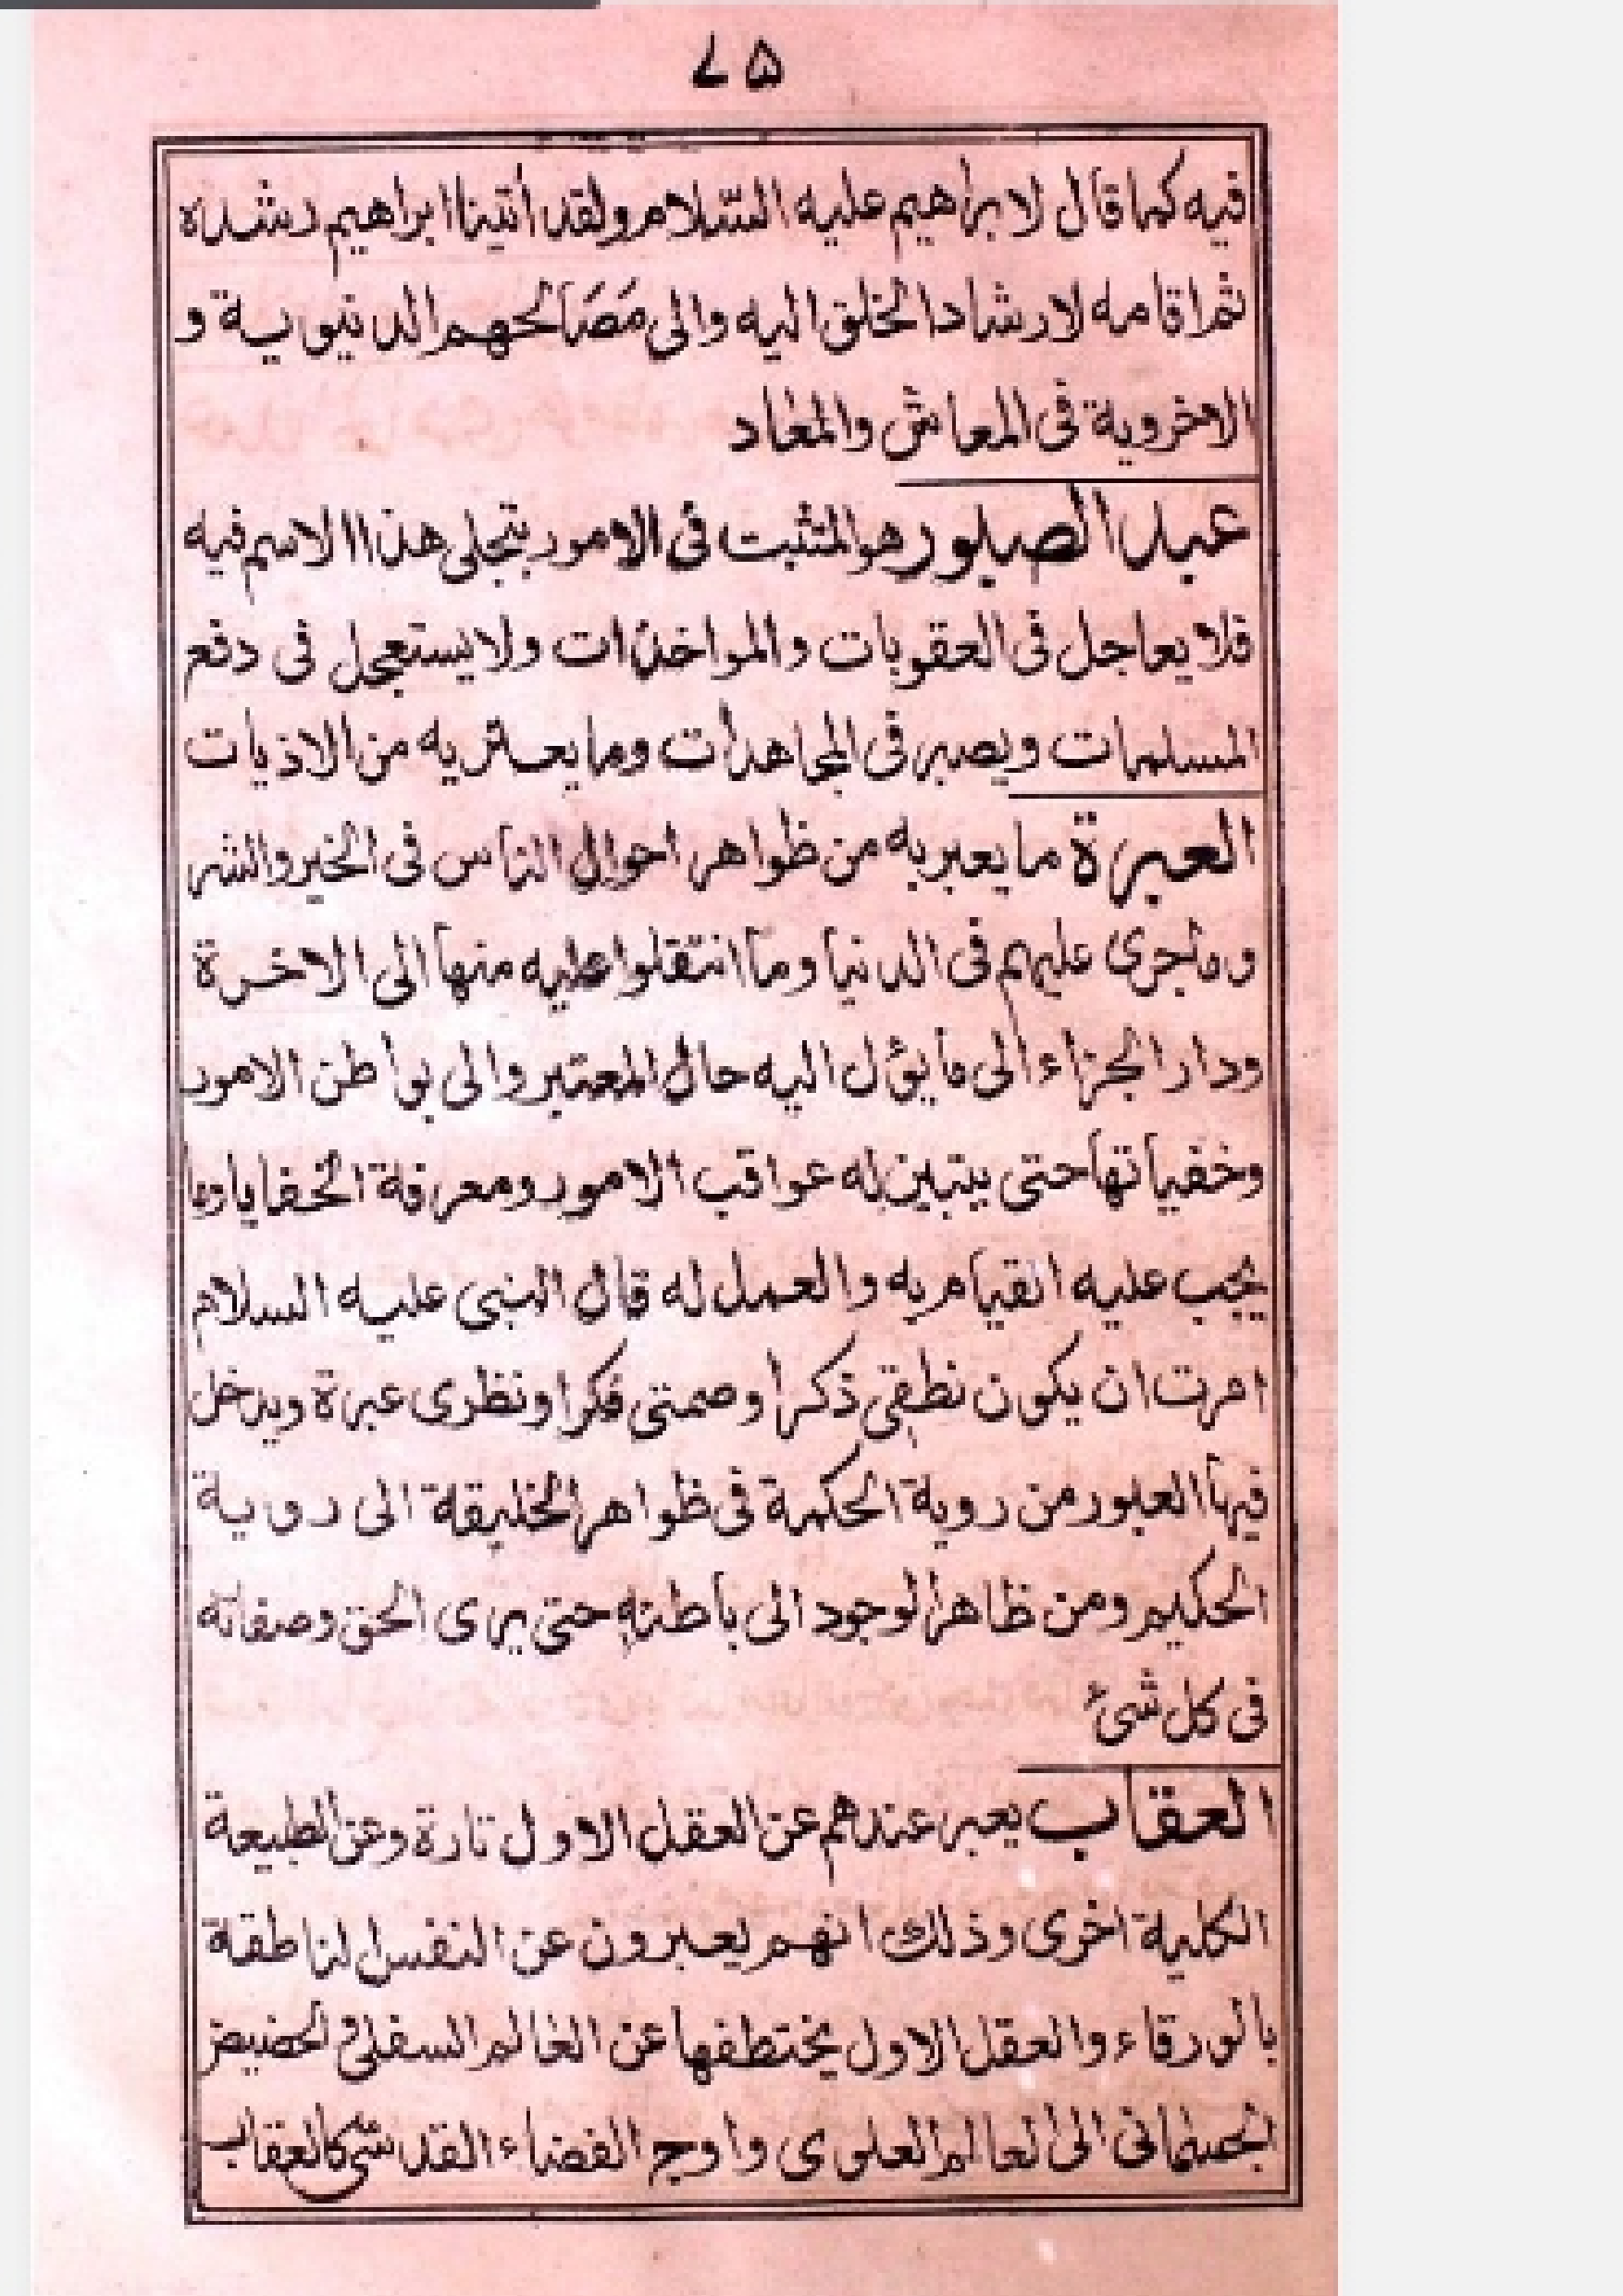 ۷۵
فيه كما قال لابراهيم عليه السلام ولقد أتينا ابراهيم رشده
ثم اقامه لارشاد الخلق اليه والى مَصَالحهم الدنيوية و
الاخروية فى المعاش والمعاد
عبد الصبور هو المثبت فى الامور بتجلى هذا الاسم فيه
فلا يعاجل فى العقوبات والمواخذات ولا يستعجل فى دفع
المسلمات ويصبر فى المجاهدات وما يعتريه من الاذيات
العبرة ما يعبر به من ظواهر احوال الناس فى الخير والشر
وماجرى عليهم فى الدنيا وما انتقلوا عليه منها الى الاخرة
ودار الجزاء الى ما يؤل اليه حال المعتبر والى بواطن الامور
وخفياتها حتى يتبين له عواقب الامور ومعرفة الخفايا وما
يجب عليه القيام به والعمل له قال النبى عليه السلام
امرت ان يكون نطقى ذكرا وصمتى فكرا ونظرى عبرة ويدخل
فيها العبور من روية الحكمة فى ظواهر الخليقة الى روية
الحكيم ومن ظاهر الوجود الى باطنه حتى يرى الحق وصفاته
فى كل شئ
العقاب يعبر عندهم عن العقل الاول تارة وعن الطبيعة
الكلية اخرى وذلك انهم يعبرون عن النفس الناطقة
بالورقاء والعقل الاول يختطفها عن العالم السفلى والحضيض
الجسمانى الى العالم العلوى واوج الفضاء القدسى كالعقاب